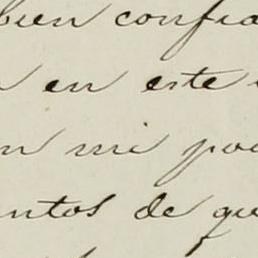 bien confia
en este
n mi po
ntos de que